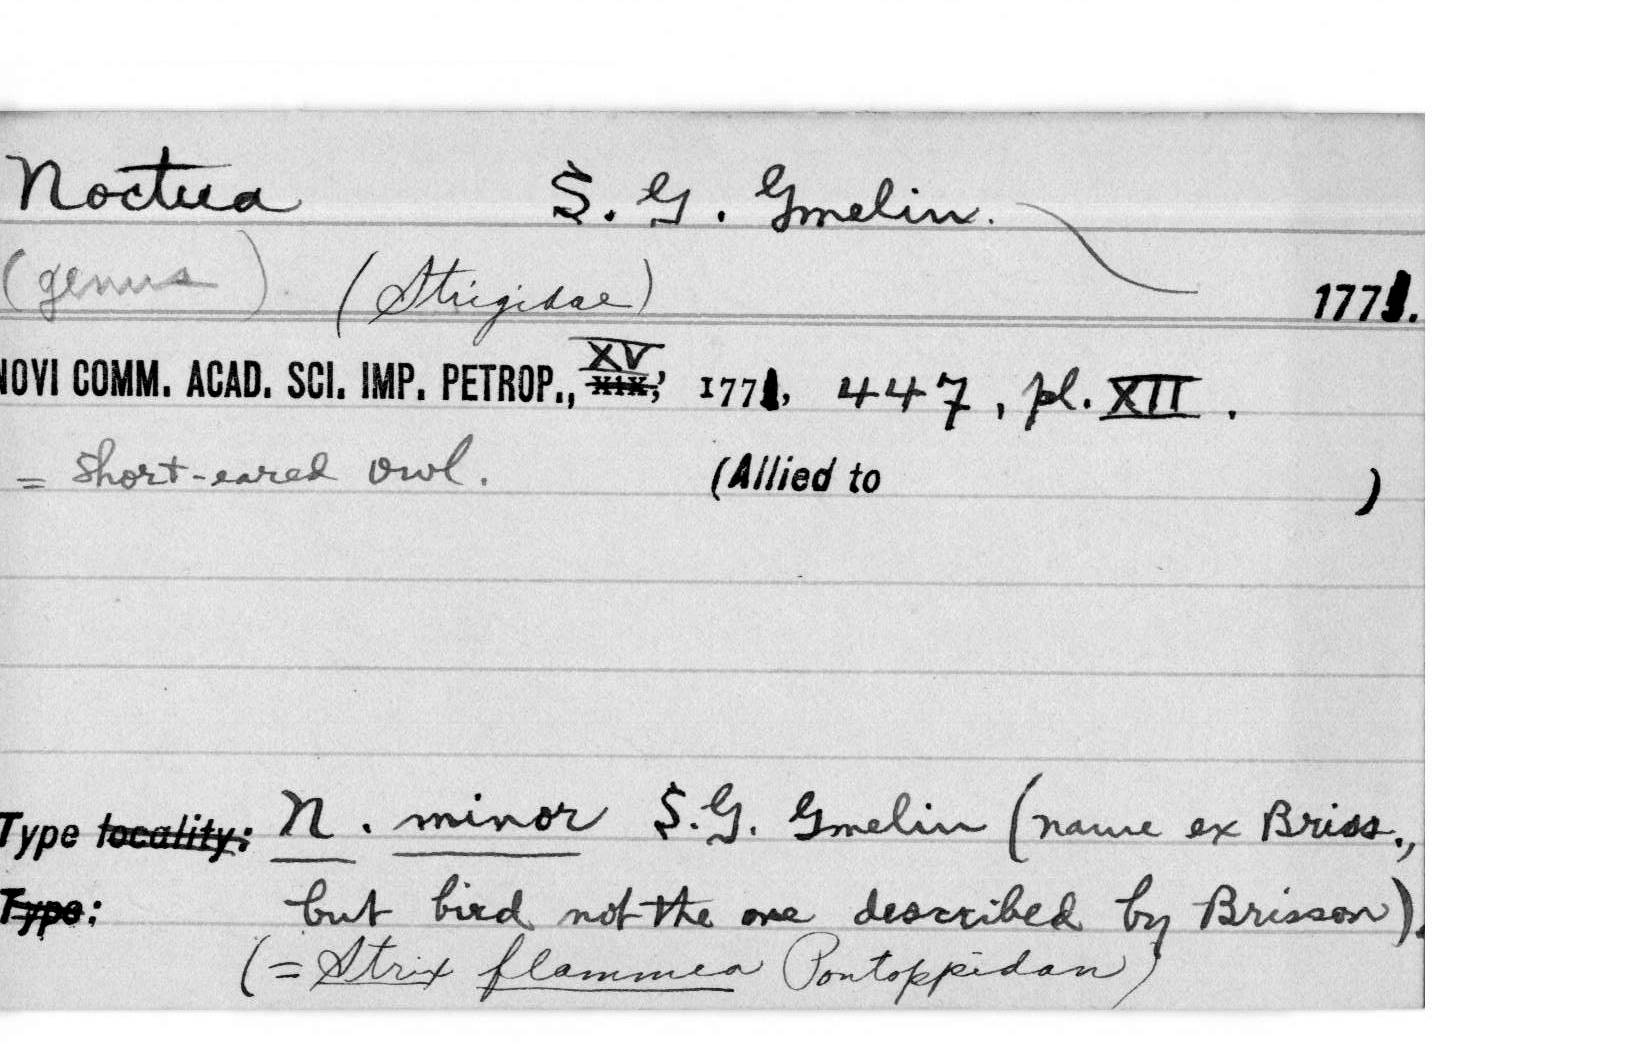 Noctua S. G. Gmelin.
(genus) (Strigidae) 1771.
NOVI COMM. ACAD. SCI. IMP. PETROP., XV XIX, 1771, 447, pl. XII.
= Short-eared Owl. (Allied to )
Type locality: N. minor S.G. Gmelin (name ex Briss.,
Type: but bird not the one described by Brisson).
(= Strix flammea Pontoppidan)